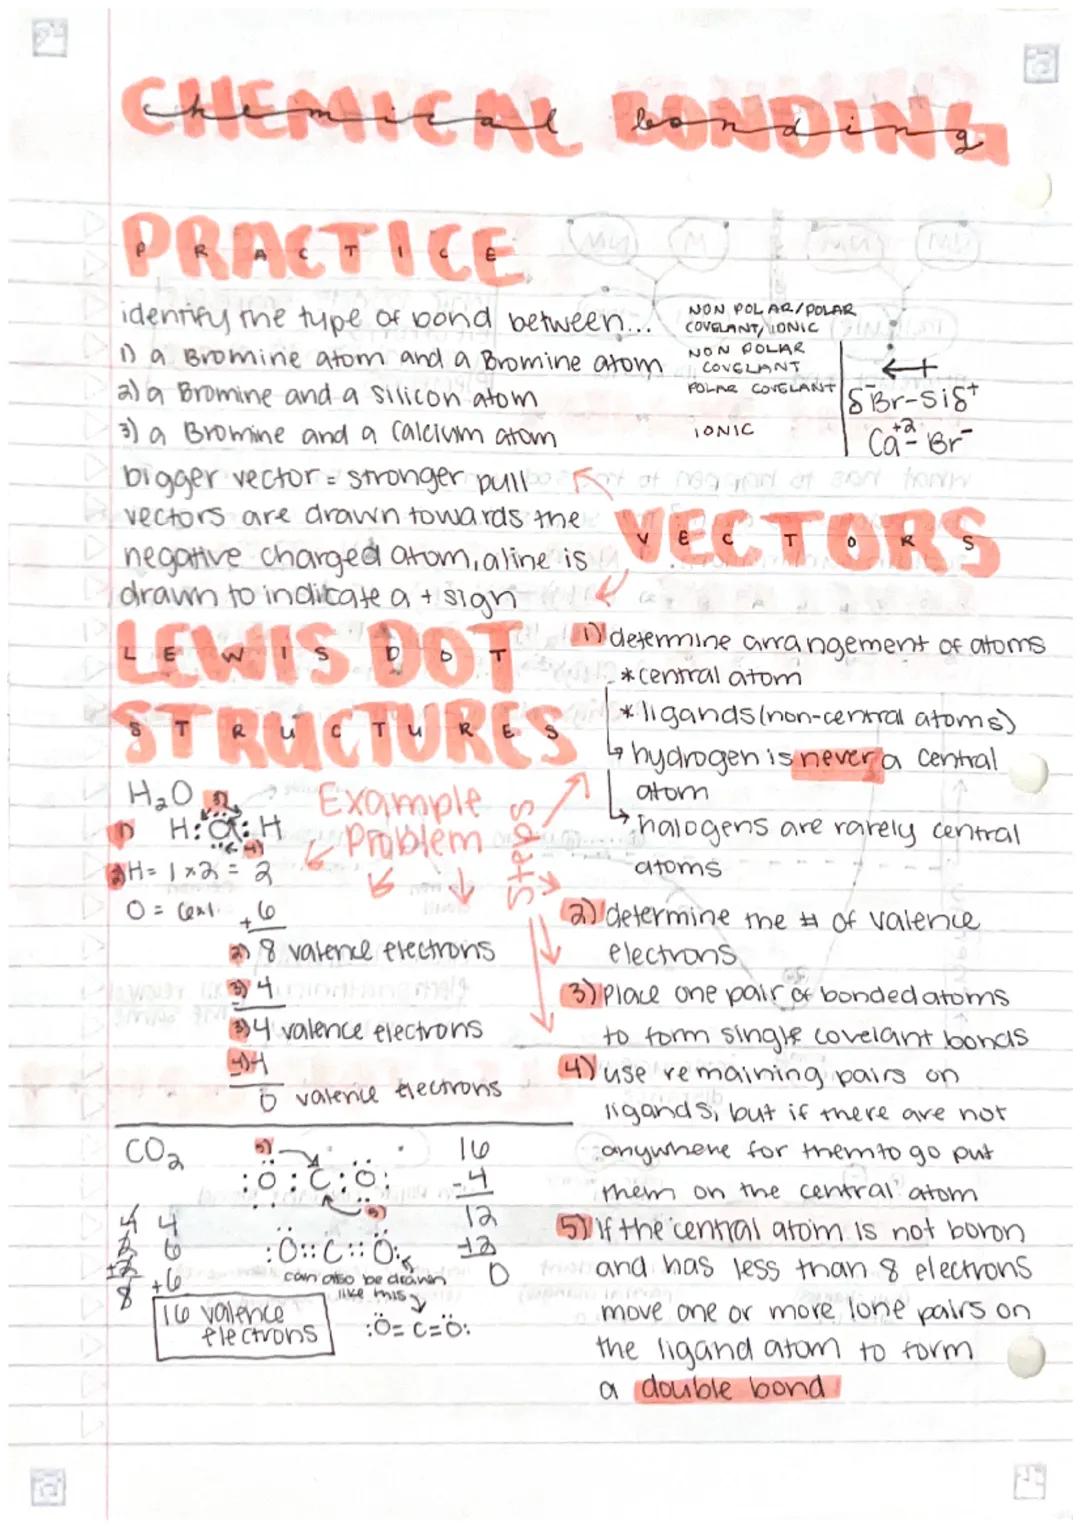 CHEMICAL BONDING
chemical bonding
PRACTICE
PRACTICE
identify the type of bond between...
NON POLAR/POLAR
COVELANT/IONIC
1) a Bromine atom and a Bromine atom
NON POLAR
COVELANT
2) a Bromine and a Silicon atom
POLAR COVELANT
δ⁻Br-Siδ⁺
3) a Bromine and a Calcium atom
IONIC
Ca⁺²- Br⁻
bigger vector = stronger pull
vectors are drawn towards the
negative charged atom, a line is
drawn to indicate a + sign
VECTORS
VECTORS
LEWIS DOT
LEWIS DOT
STRUCTURES
STRUCTURES
Steps
1) determine arrangement of atoms
* central atom
* ligands (non-central atoms)
↳ hydrogen is never a central
atom
↳ halogens are rarely central
atoms
2) determine the # of valence
electrons
3) Place one pair of bonded atoms
to form single covelant bonds
4) use remaining pairs on
ligands, but if there are not
anywhere for them to go put
them on the central atom
5) If the central atom is not boron
and has less than 8 electrons
move one or more lone pairs on
the ligand atom to form
a double bond
Example
Problem
H₂O
3)
1) H:O:H
4)
2) H = 1×2 = 2
O = 6×1 +6
2) 8 valence electrons
3) 4
3) 4 valence electrons
4) 4
0 valence electrons
CO₂
5)
:O:C:O:
5)
16
-4
12
-12
0
:O::C::O:
can also be drawn
like this
:Ö=C=Ö:
4
6
+6
8
16 valence
electrons